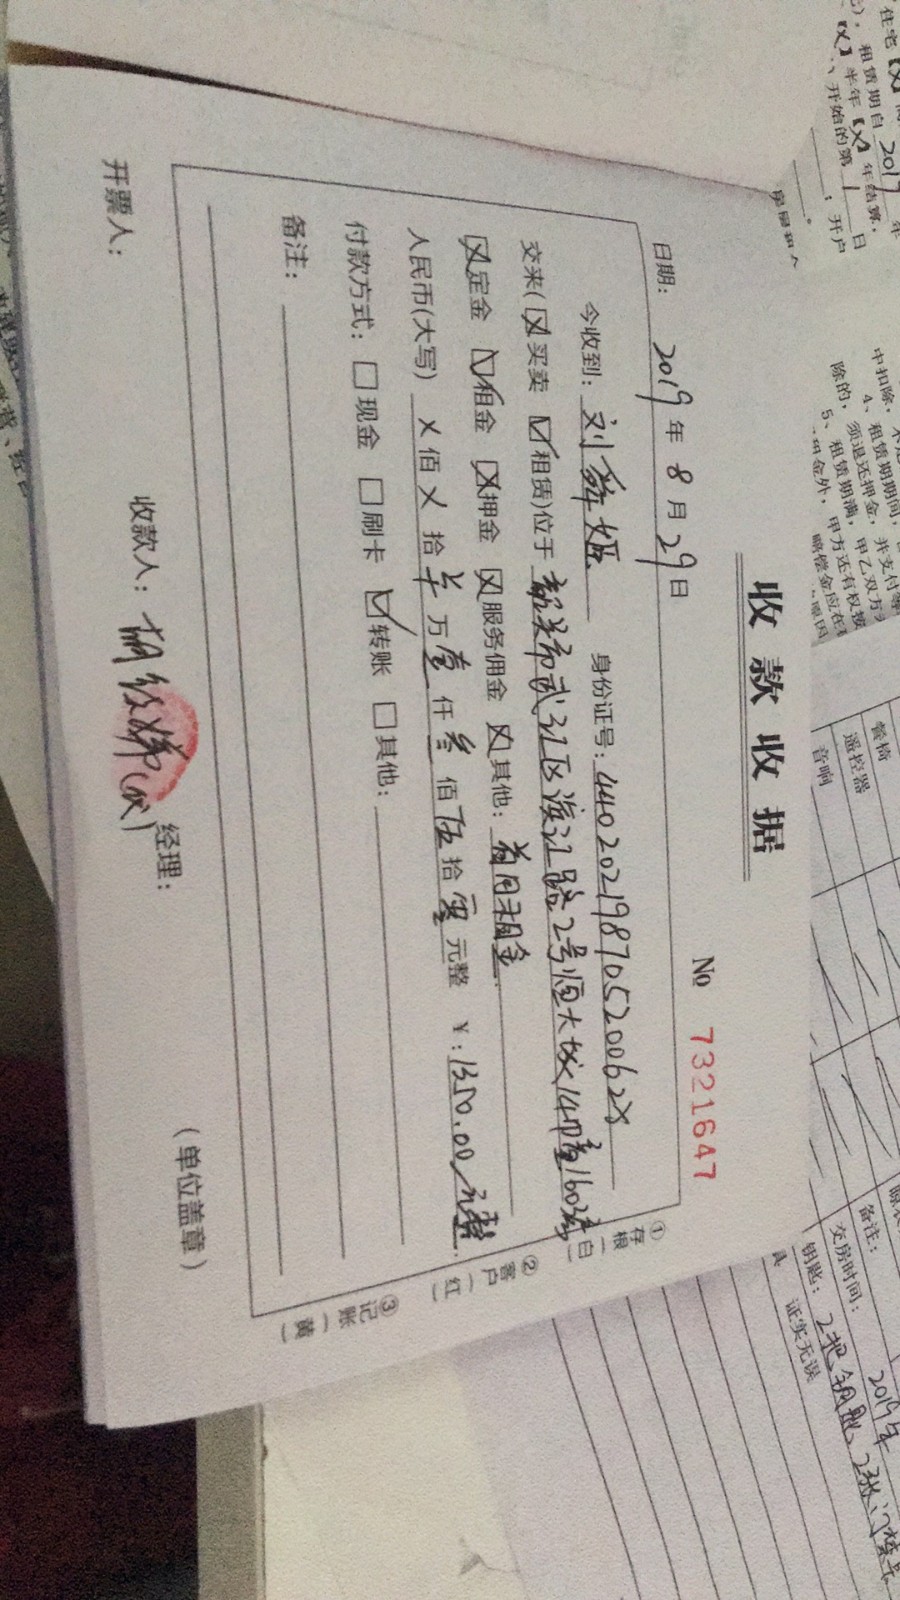 收款收据
No 7321647
日期: 2019年8月29日
今收到: 刘 身份证号: 44020219870520062X
交来(☒买卖 ☑租赁)位于 韶关市武江区滨江路2号恒大城14幢1603房
☒定金 ☑租金 ☒押金 ☒服务佣金 ☒其他: 首月租金
人民币(大写) X 佰 X 拾 万 壹 仟 叁 佰 伍 拾 零 元整 ¥: 1350.00/元整
付款方式: ☐现金 ☐刷卡 ☑转账 ☐其他:
备注:
开票人: 收款人: 胡 经理: (单位盖章)
①存根(白)
②客户(红)
③记账(黄)
住宅【X】
租赁期自 2019 年
【X】半年【X】年结算,
开始的第 1 日
; 开户
中扣除,
4、租赁期期间,
除的, 须退还押金, 并支付等
5、租赁期满, 甲乙双方
金外, 甲方还有权按
赔偿金应在
餐椅
遥控器
音响
备注:
交房时间: 2019年
钥匙: 2把钥匙, 2张门禁卡
证实无误